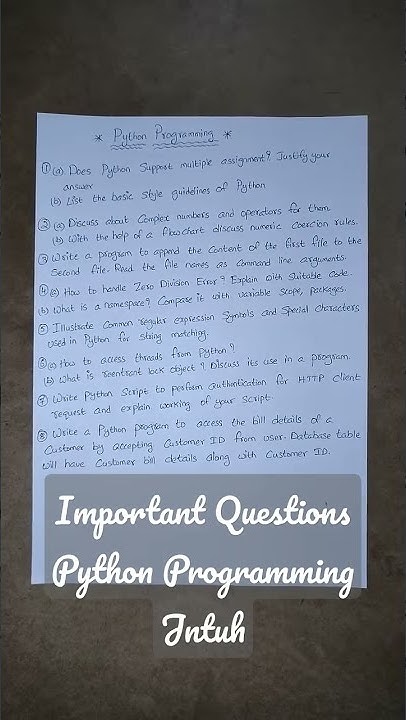 * Python Programming *
① (a) Does Python Support multiple assignment? Justify your
answer
(b) List the basic style guidelines of Python
② (a) Discuss about Complex numbers and operators for them.
(b) With the help of a flowchart discuss numeric Coercion rules.
③ Write a program to append the content of the first file to the
Second file. Read the file names as Command line arguments.
④ (a) How to handle Zero Division Error? Explain with Suitable code.
(b) What is a namespace? Compare it with variable scope, packages.
⑤ Illustrate Common regular expression Symbols and Special characters
used in Python for string matching.
⑥ (a) How to access threads from Python?
(b) What is reentrant lock object? Discuss its use in a program.
⑦ Write Python Script to perform authentication for HTTP Client
request and explain working of your Script.
⑧ Write a Python program to access the bill details of a
Customer by accepting Customer ID from user. Database table
will have Customer bill details along with Customer ID.
Important Questions
Python Programming
Jntuh